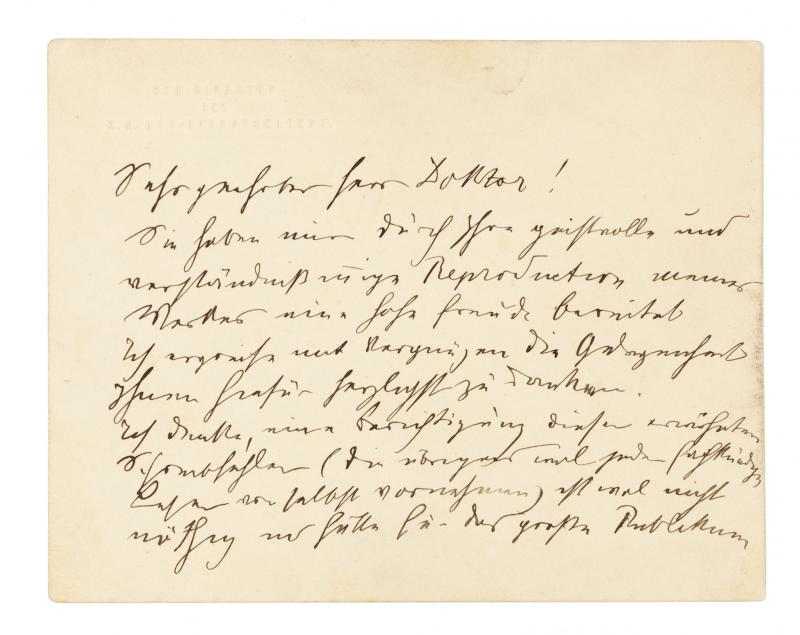 DER DIRECTOR
DES
K. K. HOF-OPERNTHEATERS.
Sehr geehrter Herr Doktor!
Sie haben mir durch Ihre geistvolle und
verständnißinnige Reproduction meines
Werkes eine hohe Freude bereitet
Ich ergreife mit Vergnügen die Gelegenheit
Ihnen hiefür herzlichst zu danken.
Ich denke, eine Berichtigung dieser erwähnten
(die übrigens wol jeder sachkundige
Leser von selbst vornehmen) ist wol nicht
nöthig und hätte für das große Publikum